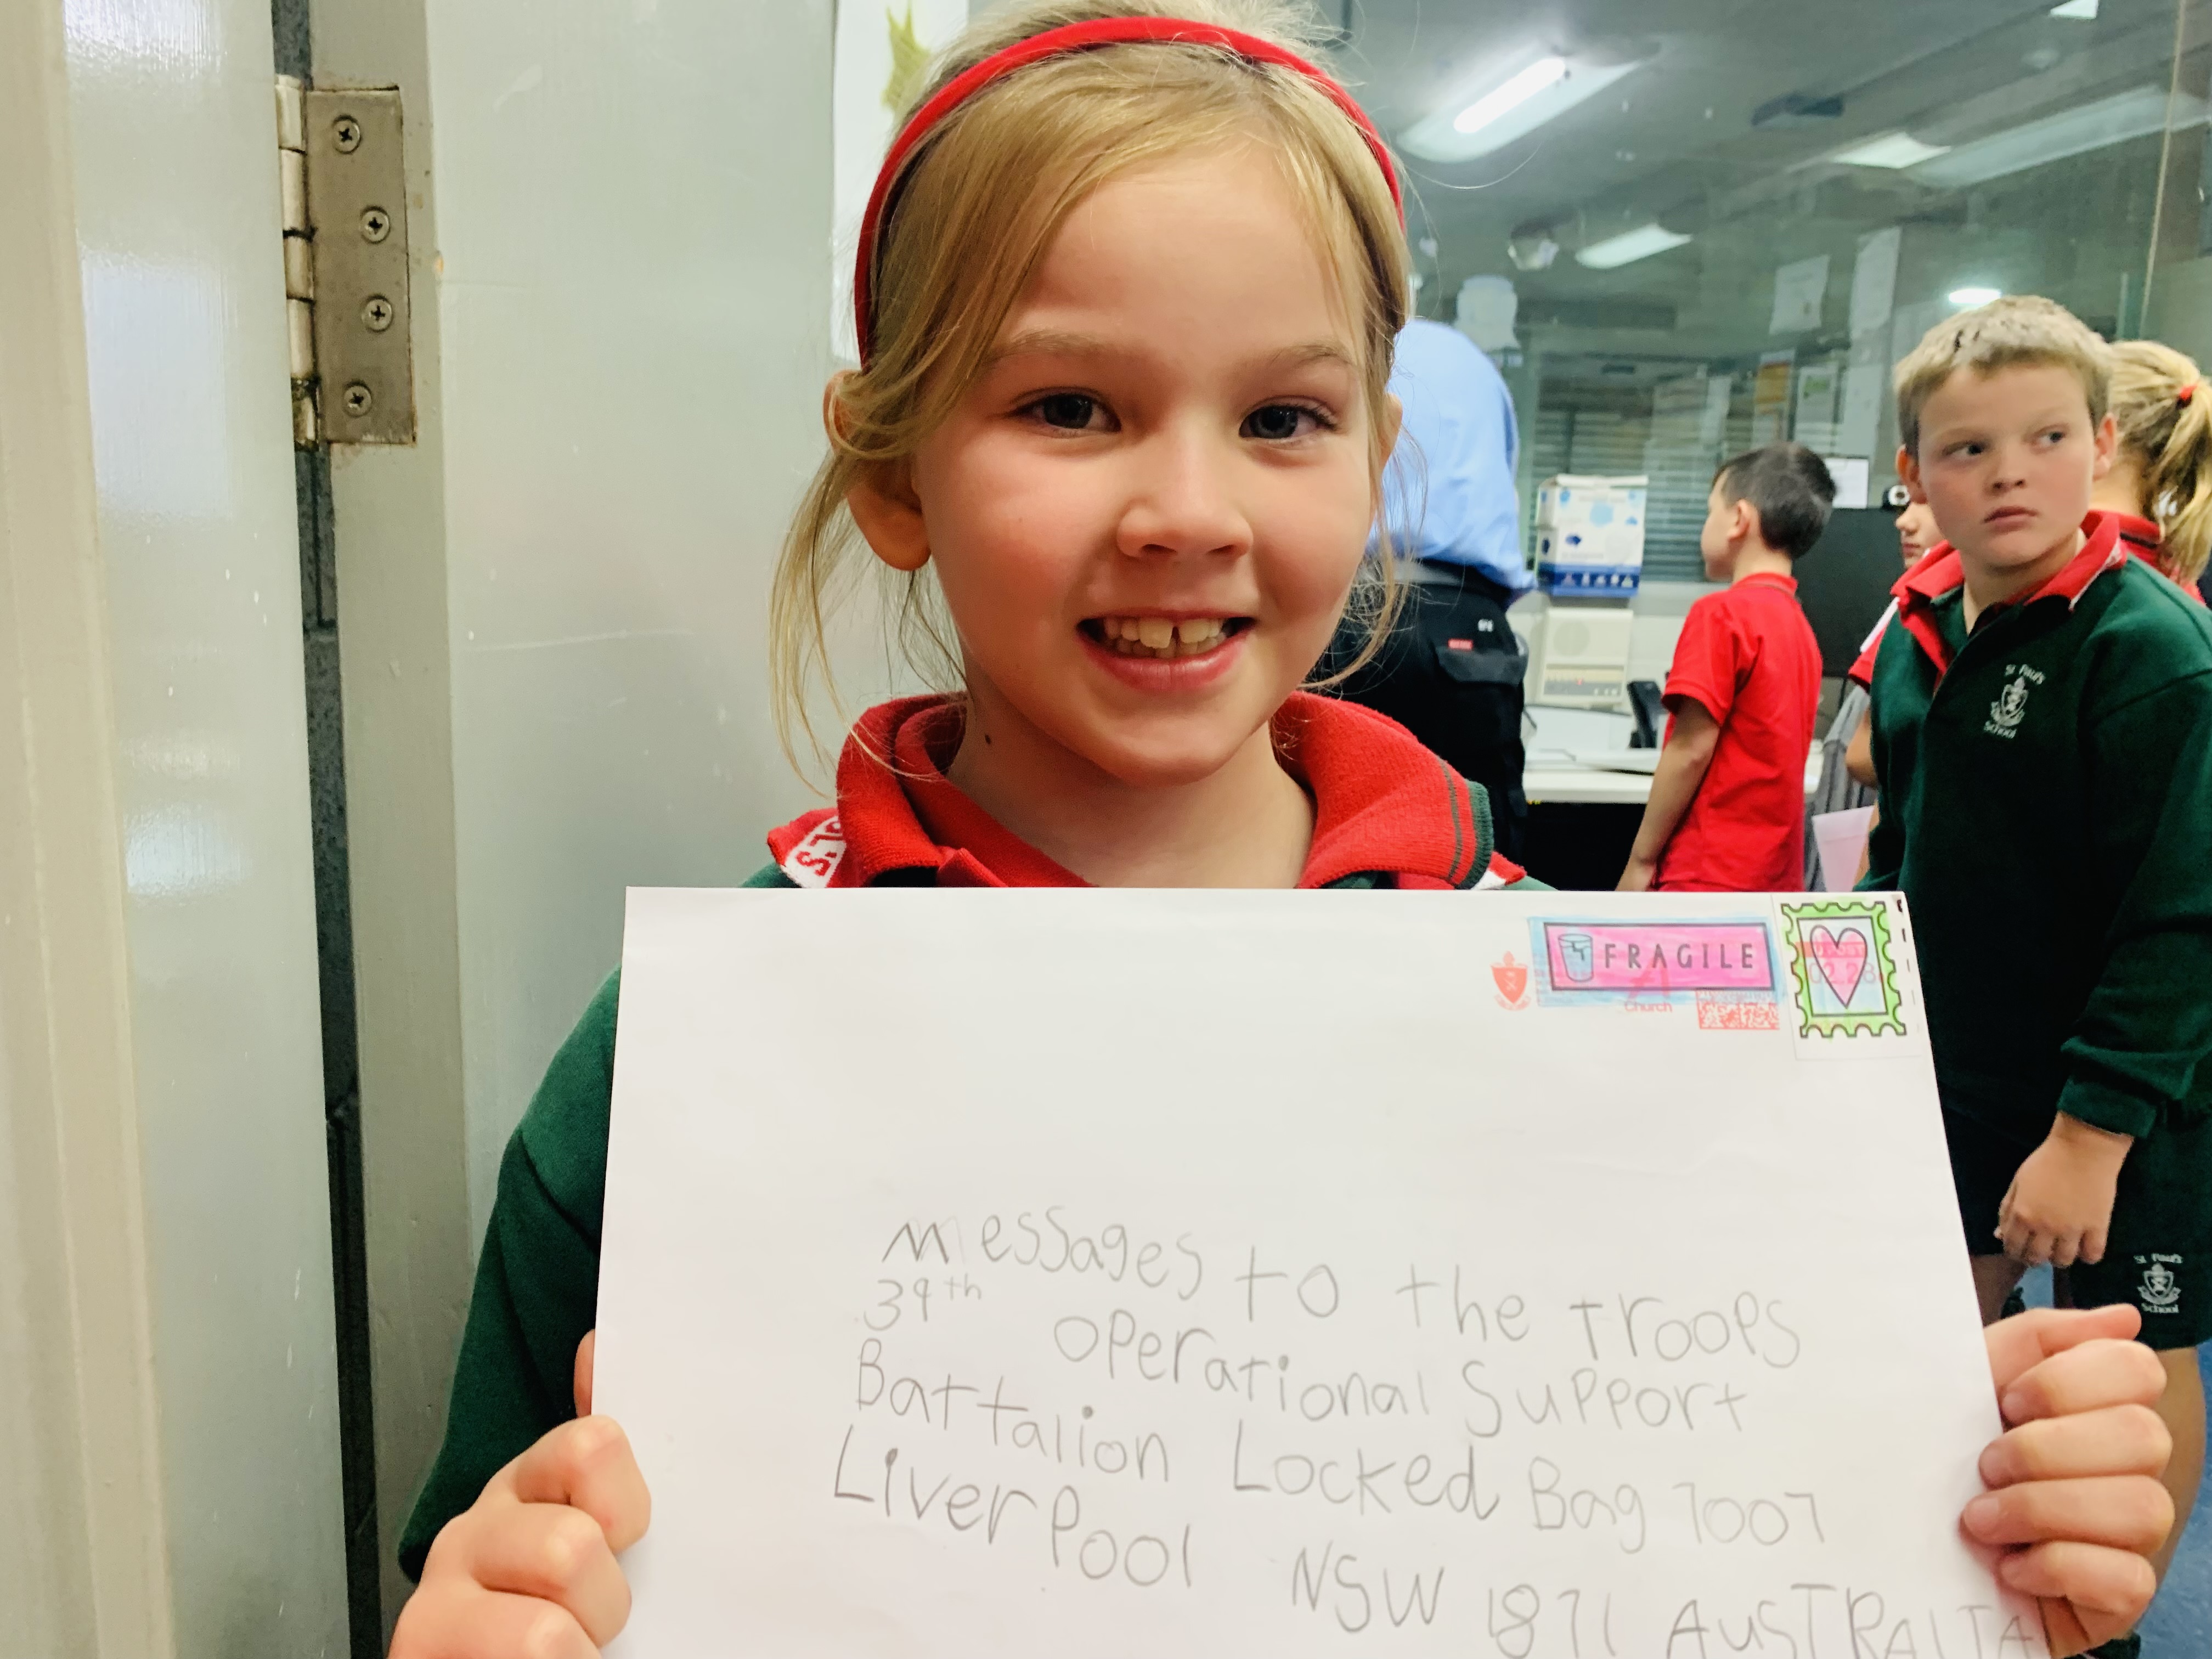 FRAGILE
Church
02.28
Messages to the Troops
39th Operational Support
Battalion Locked Bag 7007
Liverpool NSW 1871 AUSTRALIA
St Paul's
School
St Paul's
School